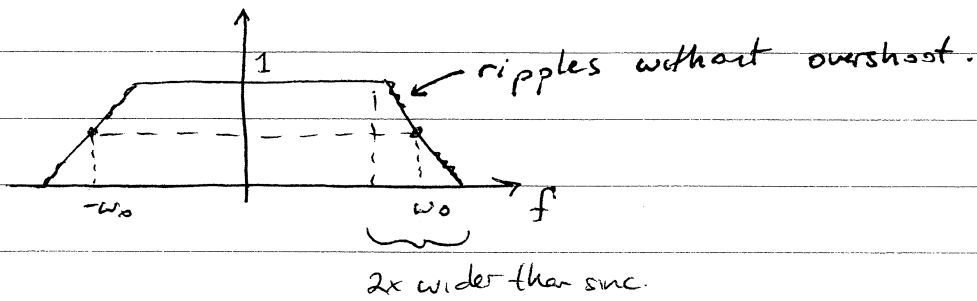 1
ripples without overshoot.
-w₀
w₀
f
2x wider than sinc.